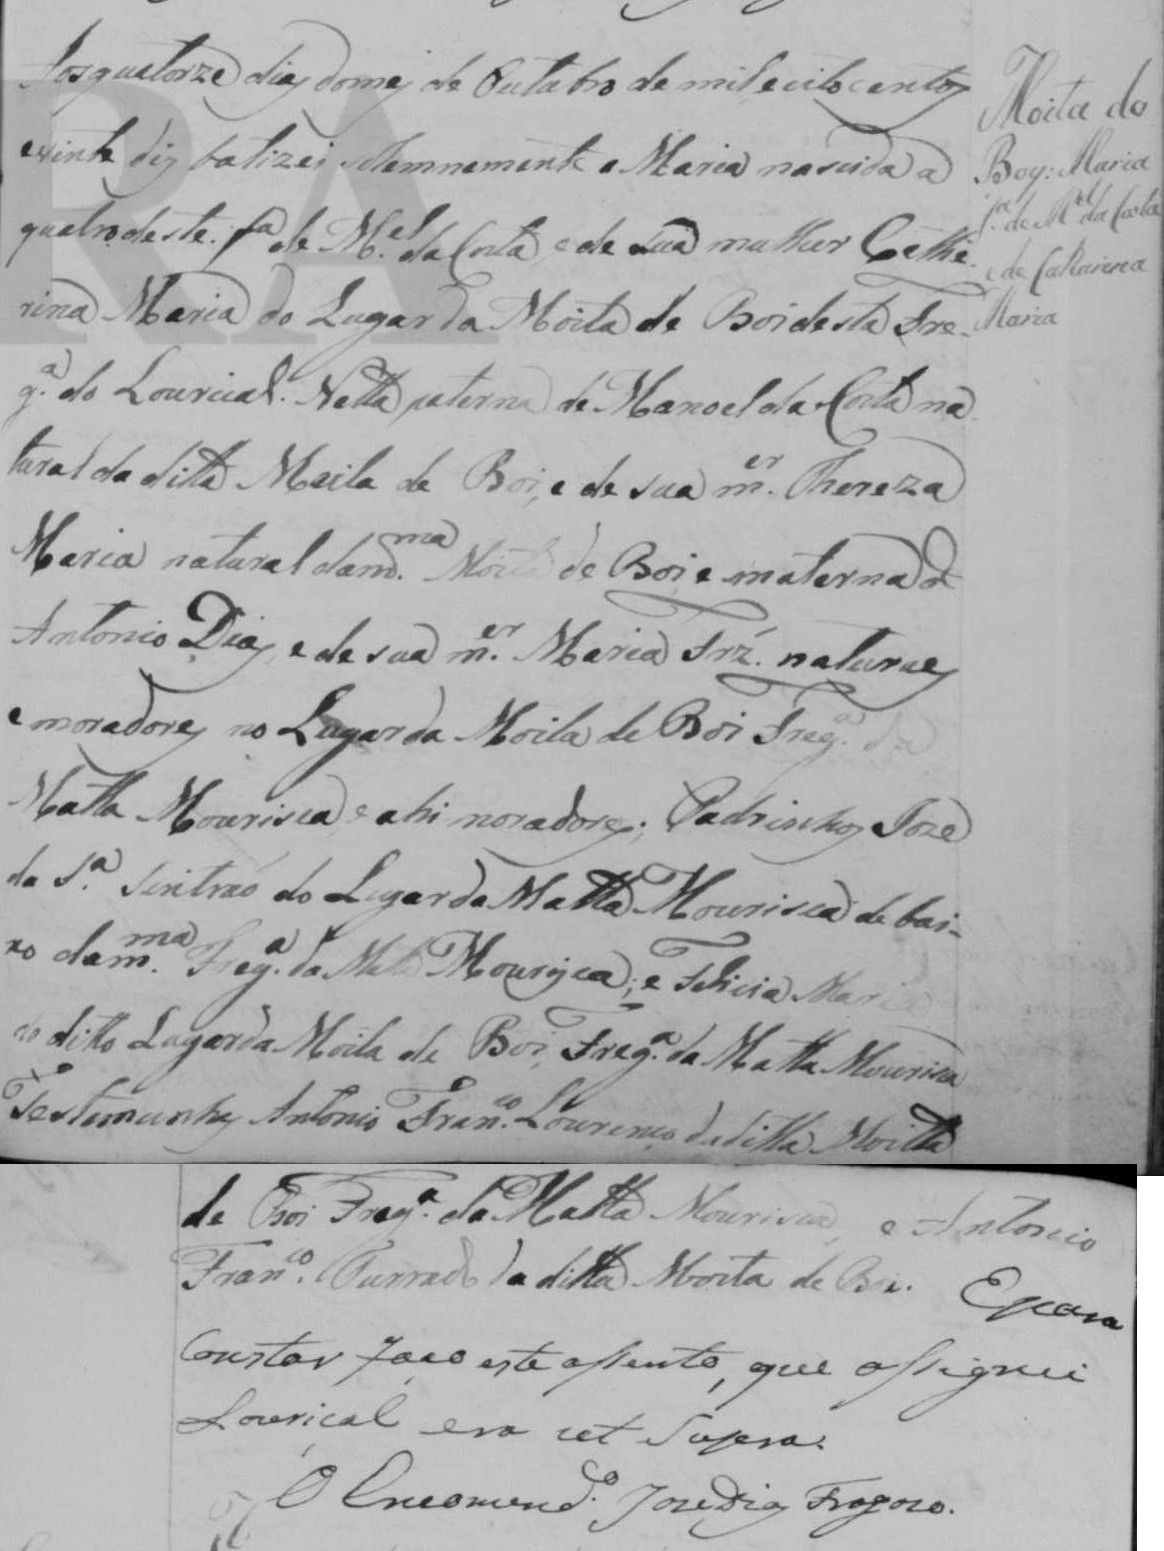 Aos quatorze dias do mes de Outubro de mil e oito centos
e vinte dis batizei solemnemente a Maria nascida a
quatro deste. fa. de Mel. da Costa e de sua mulher Cathe-
rina Maria do Lugar da Moita de Boi desta Fre-
ga. do Lourical. Netta paterna de Manoel da Costa na-
tural da ditta Moita de Boi, e de sua mer. Thereza
Maria natural da mma. Moita de Boi e materna de
Antonio Dias, e de sua mer. Maria Frz. naturaes
e moradores no Lugar da Moita de Boi Frega. da
Matta Mourisca e ahi moradores; Padrinhos Joze
da Sa. Sintrao do Lugar da Matta Mourisca de bai-
xo da mma. Frega. da Matta Mourisca; e Felicia Maria
do ditto Lugar da Moita de Boi, Frega. da Matta Mourisca
Testemunhas Antonio Franco. Lourenço da ditta Moitta
de Boi Frega. da Matta Mourisca, e Antonio
Franco. Furrado da ditta Moita de Boi. E para
Constar faço este assento, que assignei
Lourical era ut supra.
O Encomendo. Joze Dias Fragozo.
Moita do
Boy: Maria
fa. de Mel. da Costa
e de Catharina
Maria